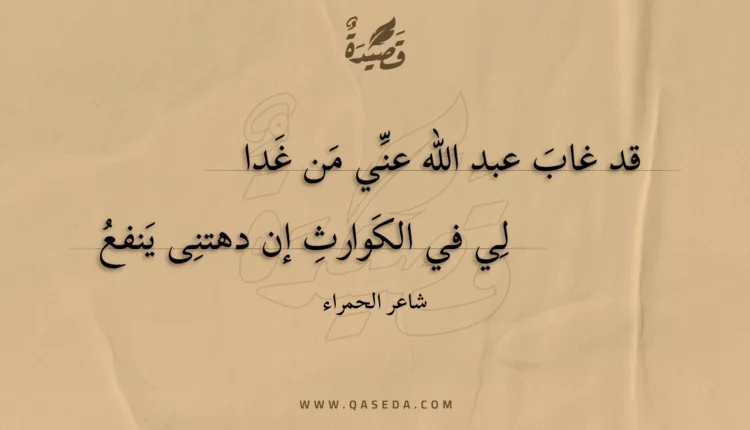 قَصِيدَةٌ
قد غابَ عبد الله عنِّي مَن غَدا
لِي في الكَوارثِ إن دهتنِى يَنفعُ
شاعر الحمراء
WWW.QASEDA.COM